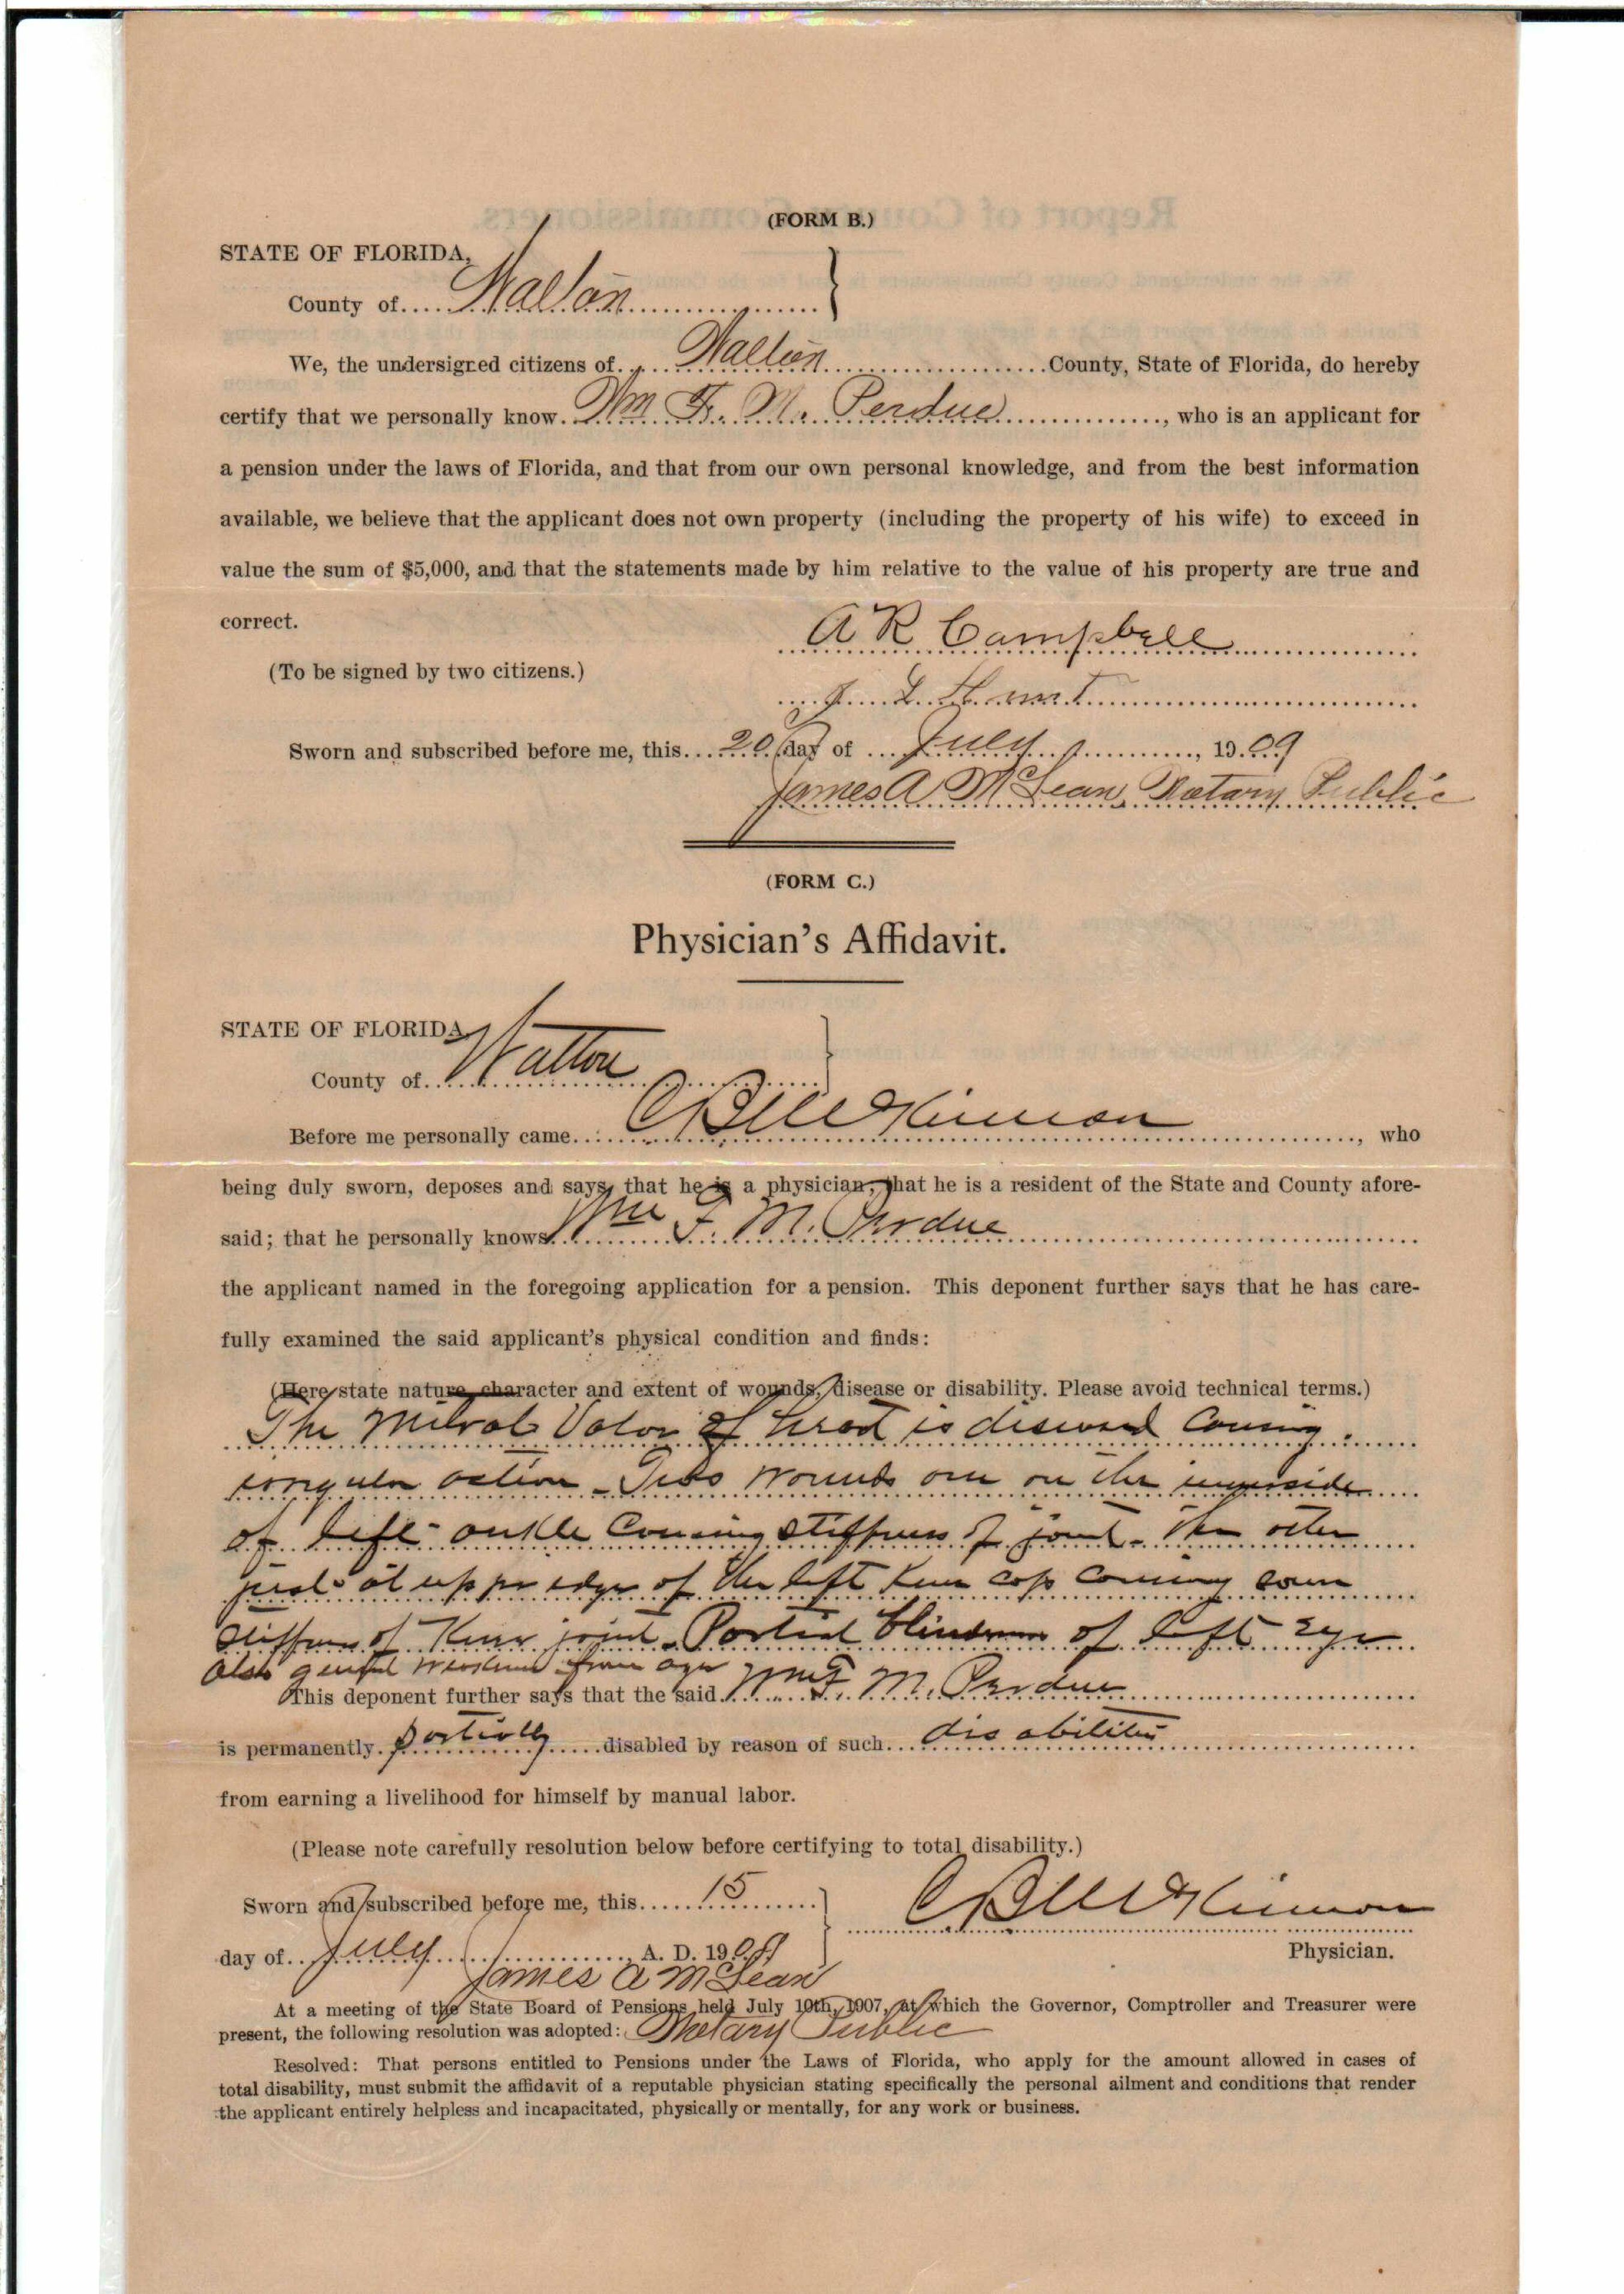 (FORM B.)
STATE OF FLORIDA,
County of Walton
We, the undersigned citizens of Walton County, State of Florida, do hereby
certify that we personally know Wm F. M. Perdue, who is an applicant for
a pension under the laws of Florida, and that from our own personal knowledge, and from the best information
available, we believe that the applicant does not own property (including the property of his wife) to exceed in
value the sum of $5,000, and that the statements made by him relative to the value of his property are true and
correct.
A R Campbell
(To be signed by two citizens.)
J. L. Hunt
Sworn and subscribed before me, this 20 day of July, 1909
James A McLean, Notary Public
(FORM C.)
Physician's Affidavit.
STATE OF FLORIDA
County of Walton
Before me personally came C B McKinnon, who
being duly sworn, deposes and says, that he is a physician, that he is a resident of the State and County afore-
said; that he personally knows Wm F. M. Perdue
the applicant named in the foregoing application for a pension. This deponent further says that he has care-
fully examined the said applicant's physical condition and finds:
(Here state nature, character and extent of wounds, disease or disability. Please avoid technical terms.)
The Mitral Valve of heart is diseased Causing
irregular action - Two wounds one on the inner side
of left ankle Causing stiffness of joint - the other
just at upper edge of the left Knee cap Causing some
stiffness of Knee joint - Partial blindness of left eye
also general weakness from age
This deponent further says that the said Wm F. M. Perdue
is permanently partially disabled by reason of such disabilities
from earning a livelihood for himself by manual labor.
(Please note carefully resolution below before certifying to total disability.)
Sworn and subscribed before me, this 15
C B McKinnon
day of July A. D. 190
Physician.
James A McLean
At a meeting of the State Board of Pensions held July 10th, 1907, at which the Governor, Comptroller and Treasurer were
present, the following resolution was adopted: Notary Public
Resolved: That persons entitled to Pensions under the Laws of Florida, who apply for the amount allowed in cases of
total disability, must submit the affidavit of a reputable physician stating specifically the personal ailment and conditions that render
the applicant entirely helpless and incapacitated, physically or mentally, for any work or business.